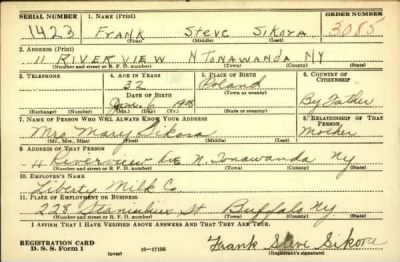 SERIAL NUMBER 1. NAME (Print) ORDER NUMBER
1423 FRANK STEVE SIKORA 3085
(First) (Middle) (Last)
2. ADDRESS (Print)
11 RIVERVIEW N TONAWANDA NY
(Number and street or R. F. D. number) (Town) (County) (State)
3. TELEPHONE 4. AGE IN YEARS 5. PLACE OF BIRTH 6. COUNTRY OF CITIZENSHIP
32 Poland
DATE OF BIRTH (Town or county)
6 1908 By Father
(Exchange) (Number) (Mo.) (Day) (Yr.) (State or country)
7. NAME OF PERSON WHO WILL ALWAYS KNOW YOUR ADDRESS 8. RELATIONSHIP OF THAT PERSON
Mrs Mary Sikora Mother
(Mr., Mrs., Miss) (First) (Middle) (Last)
9. ADDRESS OF THAT PERSON
11 Riverview Ave N. Tonawanda Ny
(Number and street or R. F. D. number) (Town) (County) (State)
10. EMPLOYER'S NAME
Liberty Milk Co
11. PLACE OF EMPLOYMENT OR BUSINESS
228 Stanislaus St Buffalo Ny
(Number and street or R. F. D. number) (Town) (County) (State)
I AFFIRM THAT I HAVE VERIFIED ABOVE ANSWERS AND THAT THEY ARE TRUE.
REGISTRATION CARD
D. S. S. Form 1 16—17105 Frank Steve Sikora
(over) (Registrant's signature)